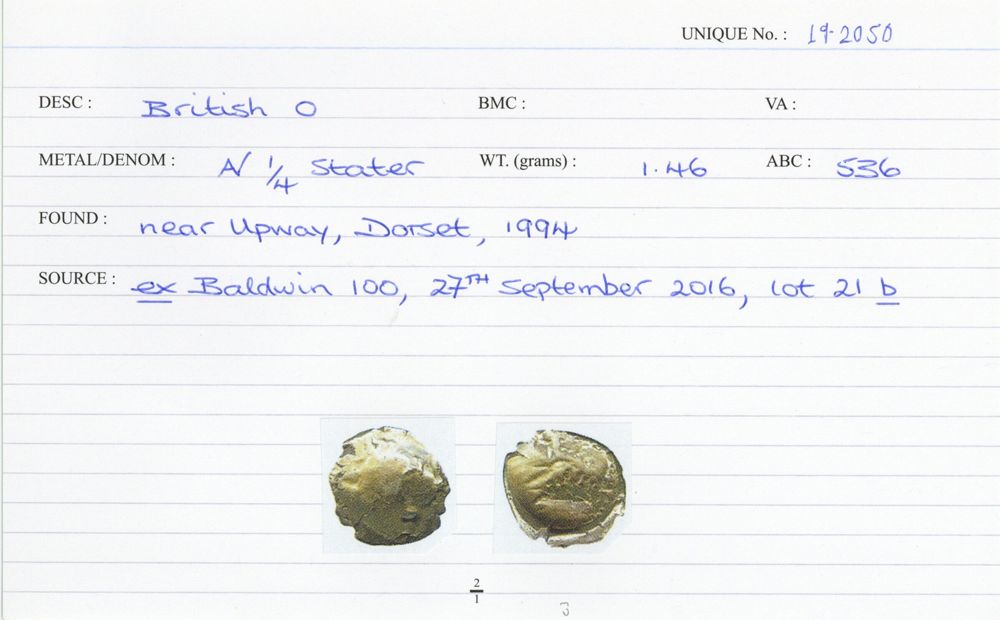 UNIQUE No. : 19-2050
DESC : British O BMC : VA :
METAL/DENOM : A/ 1/4 Stater WT. (grams) : 1.46 ABC : 536
FOUND : near Upway, Dorset, 1994
SOURCE : ex Baldwin 100, 27TH September 2016, lot 21 b
2/1
J